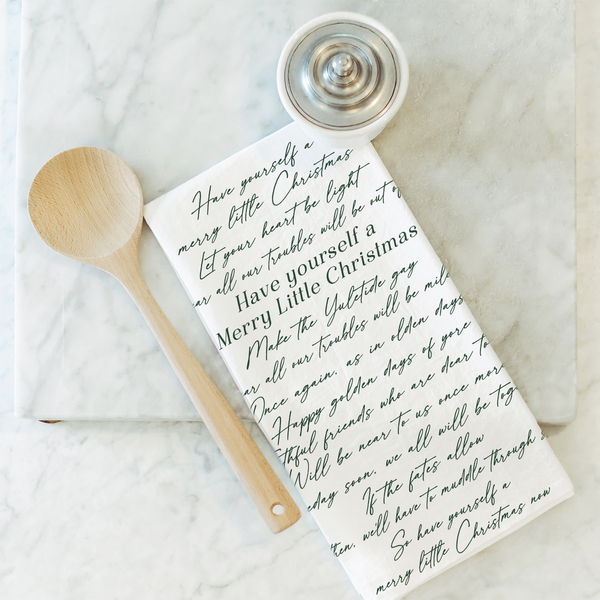 Have yourself a
merry little Christmas
Let your heart be light
all our troubles will be out of
Have yourself a
Merry Little Christmas
Make the Yuletide gay
all our troubles will be
Once again, as in olden days
Happy golden days of yore
friends who are dear to
Will be near to us once
soon, we all will be
If the fates allow
we'll have to muddle through
So have yourself a
merry little Christmas now